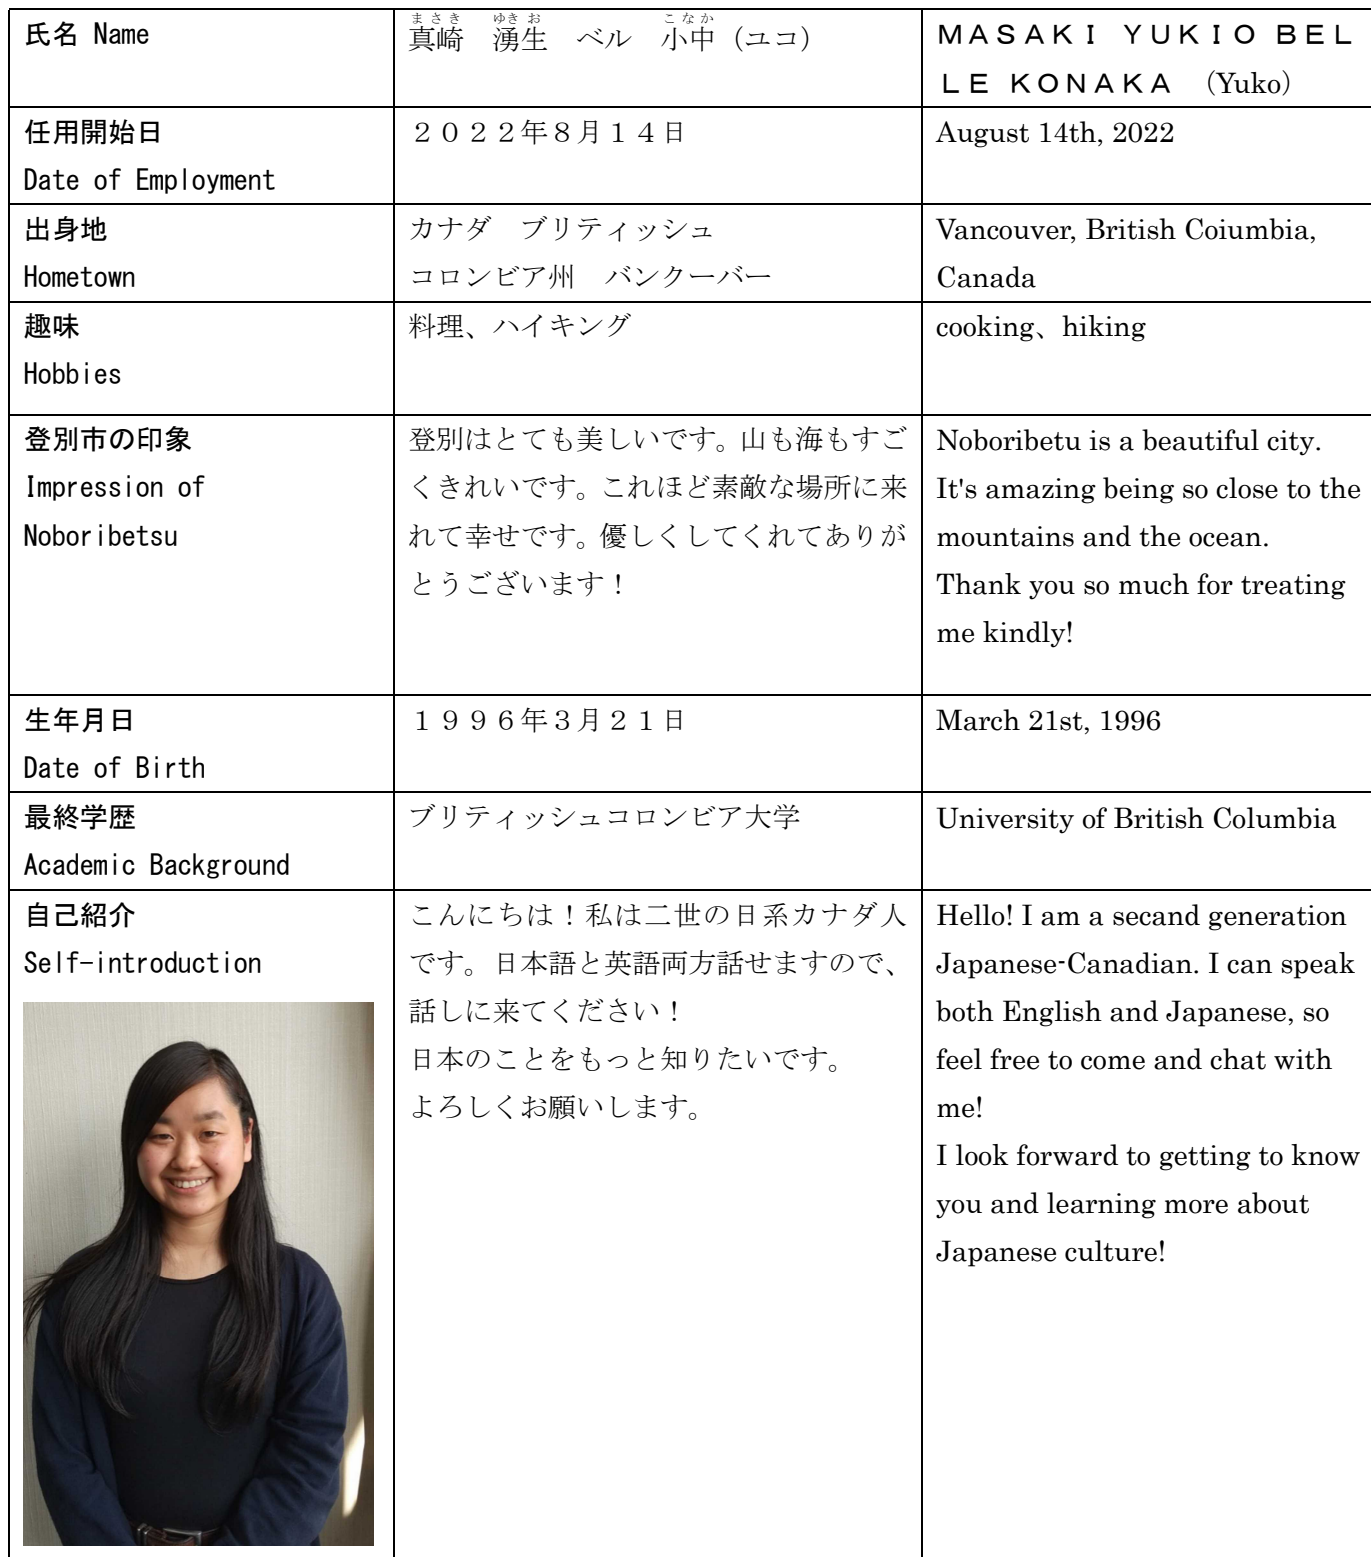 氏名 Name
真崎　湧生　ベル　小中（ユコ）
まさき ゆきお こなか
ＭＡＳＡＫＩ　ＹＵＫＩＯ ＢＥＬ
ＬＥ ＫＯＮＡＫＡ　（Yuko）
任用開始日
Date of Employment
２０２２年８月１４日
August 14th, 2022
出身地
Hometown
カナダ　ブリティッシュ
コロンビア州　バンクーバー
Vancouver, British Coiumbia,
Canada
趣味
Hobbies
料理、ハイキング
cooking、hiking
登別市の印象
Impression of
Noboribetsu
登別はとても美しいです。山も海もすご
くきれいです。これほど素敵な場所に来
れて幸せです。優しくしてくれてありが
とうございます！
Noboribetu is a beautiful city.
It's amazing being so close to the
mountains and the ocean.
Thank you so much for treating
me kindly!
生年月日
Date of Birth
１９９６年３月２１日
March 21st, 1996
最終学歴
Academic Background
ブリティッシュコロンビア大学
University of British Columbia
自己紹介
Self-introduction
こんにちは！私は二世の日系カナダ人
です。日本語と英語両方話せますので、
話しに来てください！
日本のことをもっと知りたいです。
よろしくお願いします。
Hello! I am a secand generation
Japanese-Canadian. I can speak
both English and Japanese, so
feel free to come and chat with
me!
I look forward to getting to know
you and learning more about
Japanese culture!